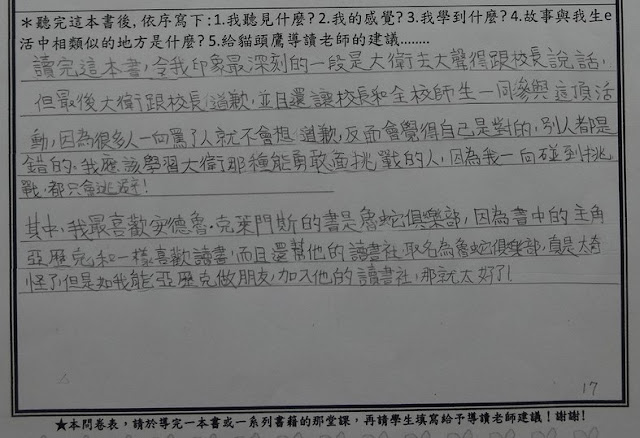 ＊聽完這本書後, 依序寫下:1.我聽見什麼? 2.我的感覺? 3.我學到什麼? 4.故事與我生e
活中相類似的地方是什麼? 5.給貓頭鷹導讀老師的建議........
讀完這本書，令我印象最深刻的一段是大衛去大聲得跟校長說話，
但最後大衛跟校長道歉，並且還讓校長和全校師生一同參與這項活
動，因為很多人一向罵了人就不會想道歉，反而會覺得自己是對的，別人都是
錯的。我應該學習大衛那種能勇敢面挑戰的人，因為我一向碰到挑
戰，都只會逃避！
其中，我最喜歡安德魯·克萊門斯的書是魯蛇俱樂部，因為書中的主角
亞歷克和一樣喜歡讀書，而且還幫他的讀書社取名為魯蛇俱樂部，真是太奇
怪了，但是如我能亞歷克做朋友，加入他的讀書社，那就太好了！
17
★本問卷表，請於導完一本書或一系列書籍的那堂課，再請學生填寫給予導讀老師建議！謝謝!